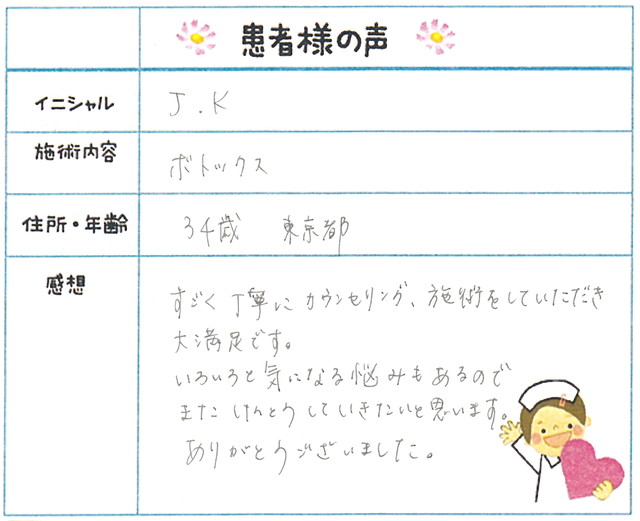 患者様の声
イニシャル J.K
施術内容 ボトックス
住所・年齢 34歳 東京都
感想
すごく丁寧にカウンセリング、施術をしていただき
大満足です。
いろいろと気になる悩みもあるので
またけんとうしていきたいと思います。
ありがとうございました。